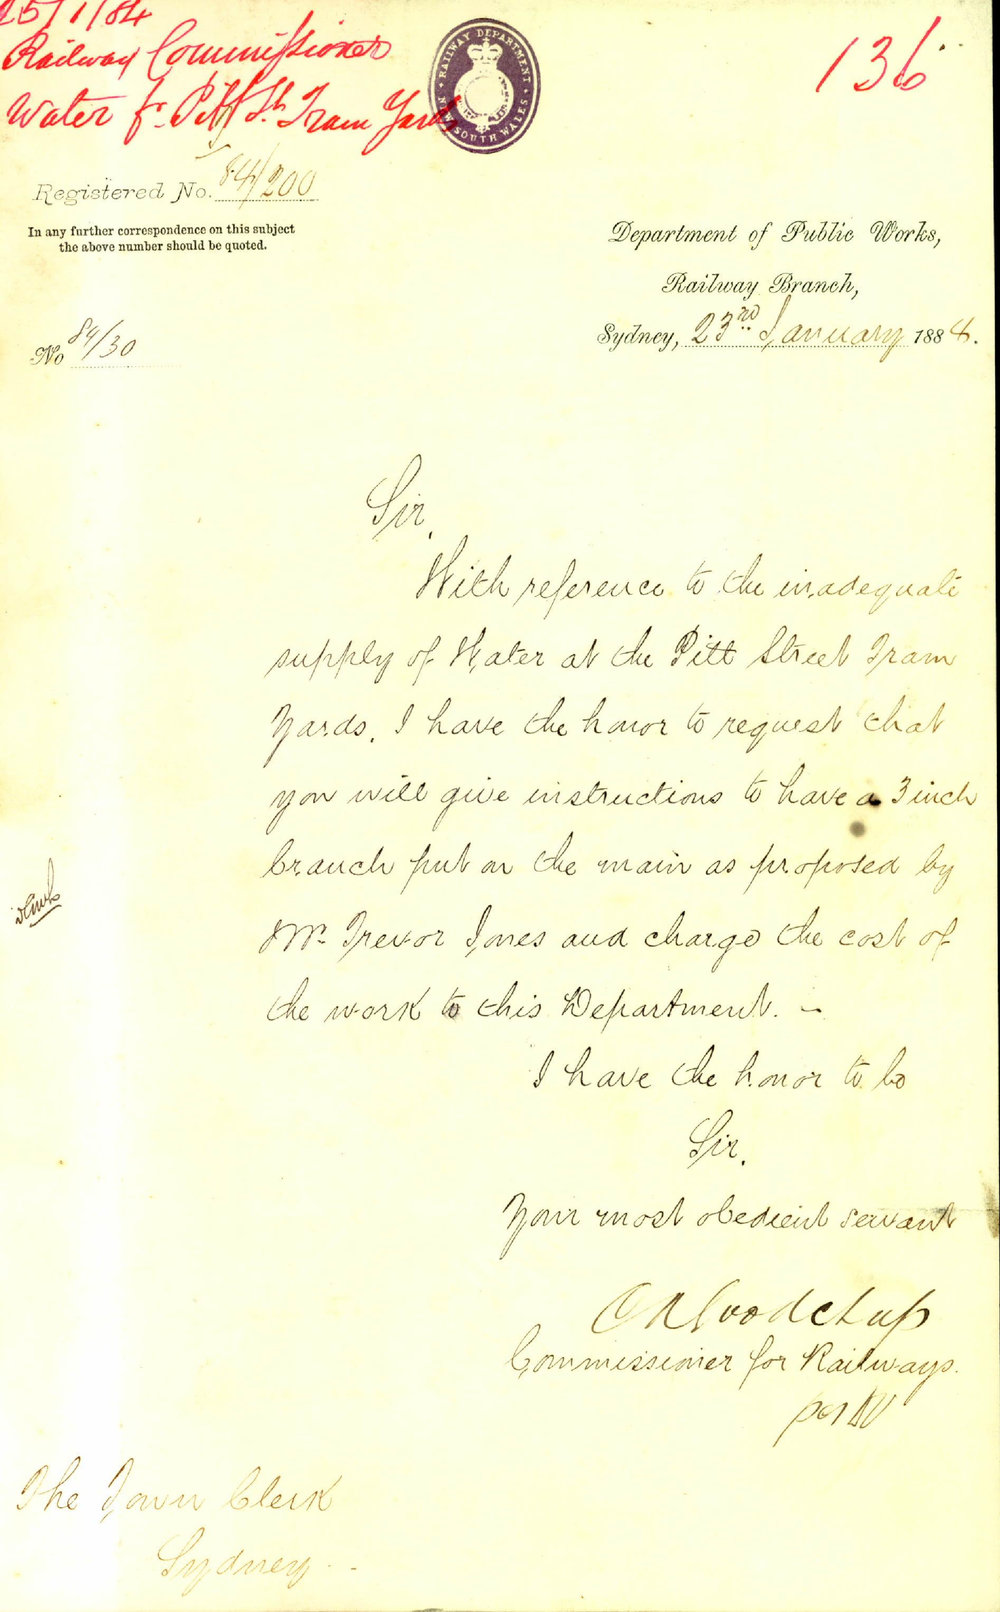 25/1/84
Railway Commissioner
Water for Pitt St. Tram Yards
136
RAILWAY DEPARTMENT
NEW SOUTH WALES
Registered No. 84/200
In any further correspondence on this subject
the above number should be quoted.
No 84/30
Department of Public Works,
Railway Branch,
Sydney, 23rd January 1884.
Sir,
With reference to the inadequate
supply of Water at the Pitt Street Tram
Yards, I have the honor to request that
you will give instructions to have a 3 inch
branch put on the main as proposed by
Mr. Trevor Jones and charge the cost of
the work to this Department. –
I have the honor to be
Sir,
Your most obedient servant
Commissioner for Railways.
per
The Town Clerk
Sydney